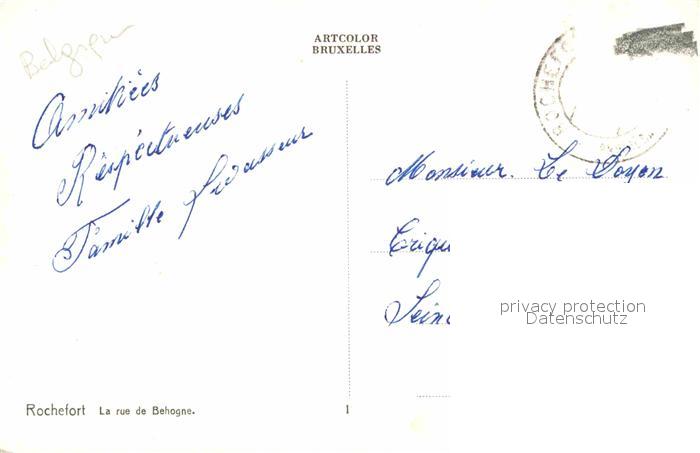 Belgique
ARTCOLOR
BRUXELLES
ROCHEFO
Amitiées
Réspéctueuses
Famille Levasseur
Monsieur. Le Doyen
Criqu
Seine
privacy protection
Datenschutz
Rochefort La rue de Behogne.
1